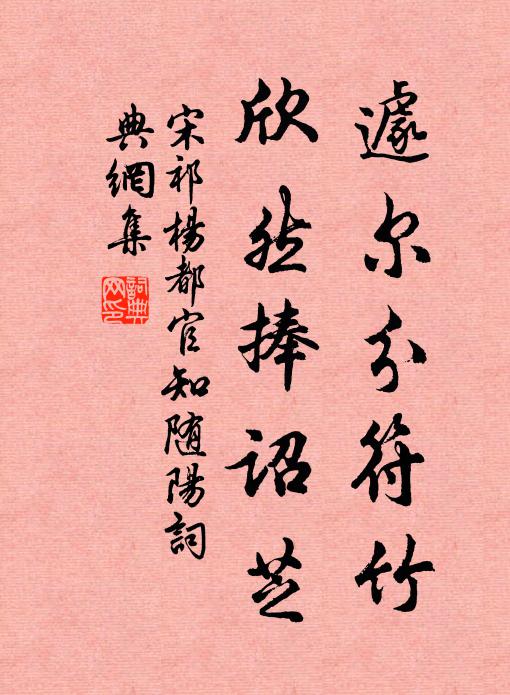 遽尔分符竹
欣然捧诏芝
宋祁杨都官知随阳词
典網集
詞典網印